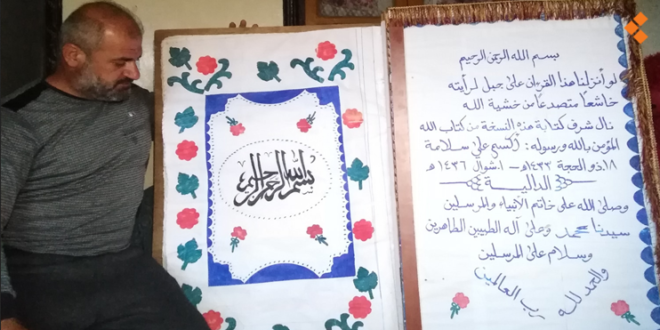 بسم الله الرحمن الرحيم
لو أنزلنا هذا القرءان على جبل لرأيته
خاشعاً متصدعاً من خشية الله
نال شرف كتابة هذه النسخة من كتاب الله
المؤمن بالله ورسوله: علي سلامة
١٨. ذو الحجة ١٤٣٣هـ - ١. شوال ١٤٣٦هـ
الدالية
وصلى الله على خاتم الأنبياء والمرسلين
سيدنا محمد وعلى آله الطيبين الطاهرين
وسلام على المرسلين
والحمد لله رب العالمين
بسم الله الرحمن الرحيم